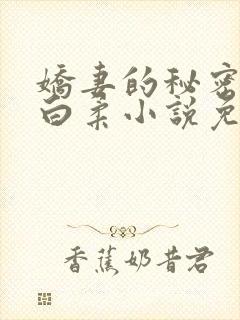 嬌妻的秘密
白柔小說免
香蕉奶昔君